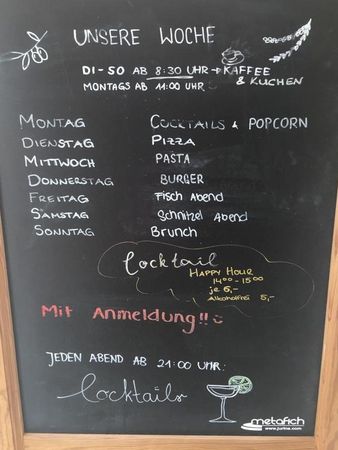 UNSERE WOCHE
DI - SO AB 8:30 UHR → KAFFEE
& KUCHEN
MONTAGS AB 11:00 UHR
MONTAG COCKTAILS & POPCORN
DIENSTAG PIZZA
MITTWOCH PASTA
DONNERSTAG BURGER
FREITAG Fisch Abend
SAMSTAG Schnitzel Abend
SONNTAG Brunch
Cocktail
HAPPY HOUR
14:00 - 15:00
je 5,-
Alkoholfrei 5,-
Mit Anmeldung!!
JEDEN ABEND AB 21:00 UHR:
Cocktails
metafich
www.jurine.com